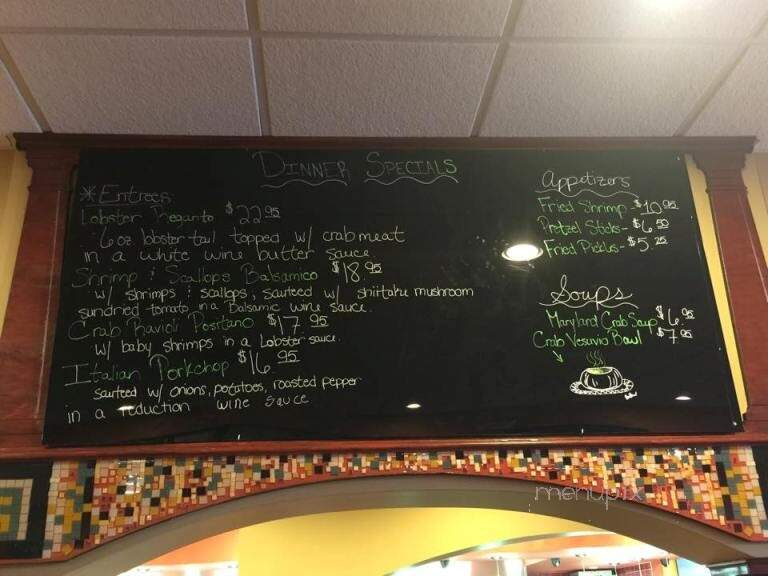 DINNER SPECIALS
*Entrees
Lobster Reganto $22.95
6 oz lobster tail topped w/ crabmeat
in a white wine butter sauce
Shrimp & Scallops Balsamico $18.95
w/ shrimps & scallops, sauteed w/ shiitake mushroom
sundried tomato in a Balsamic wine sauce.
Crab Ravioli Positano $17.95
w/ baby shrimps in a Lobster sauce.
Italian Porkchop $16.95
sauteed w/ onions, potatoes, roasted pepper
in a reduction wine sauce
Appetizers
Fried Shrimp - $10.95
Pretzel Sticks - $6.50
Fried Pickles - $5.25
Soups
Maryland Crab Soup $6.95
Crab Vesuvio Bowl $7.95
menupix